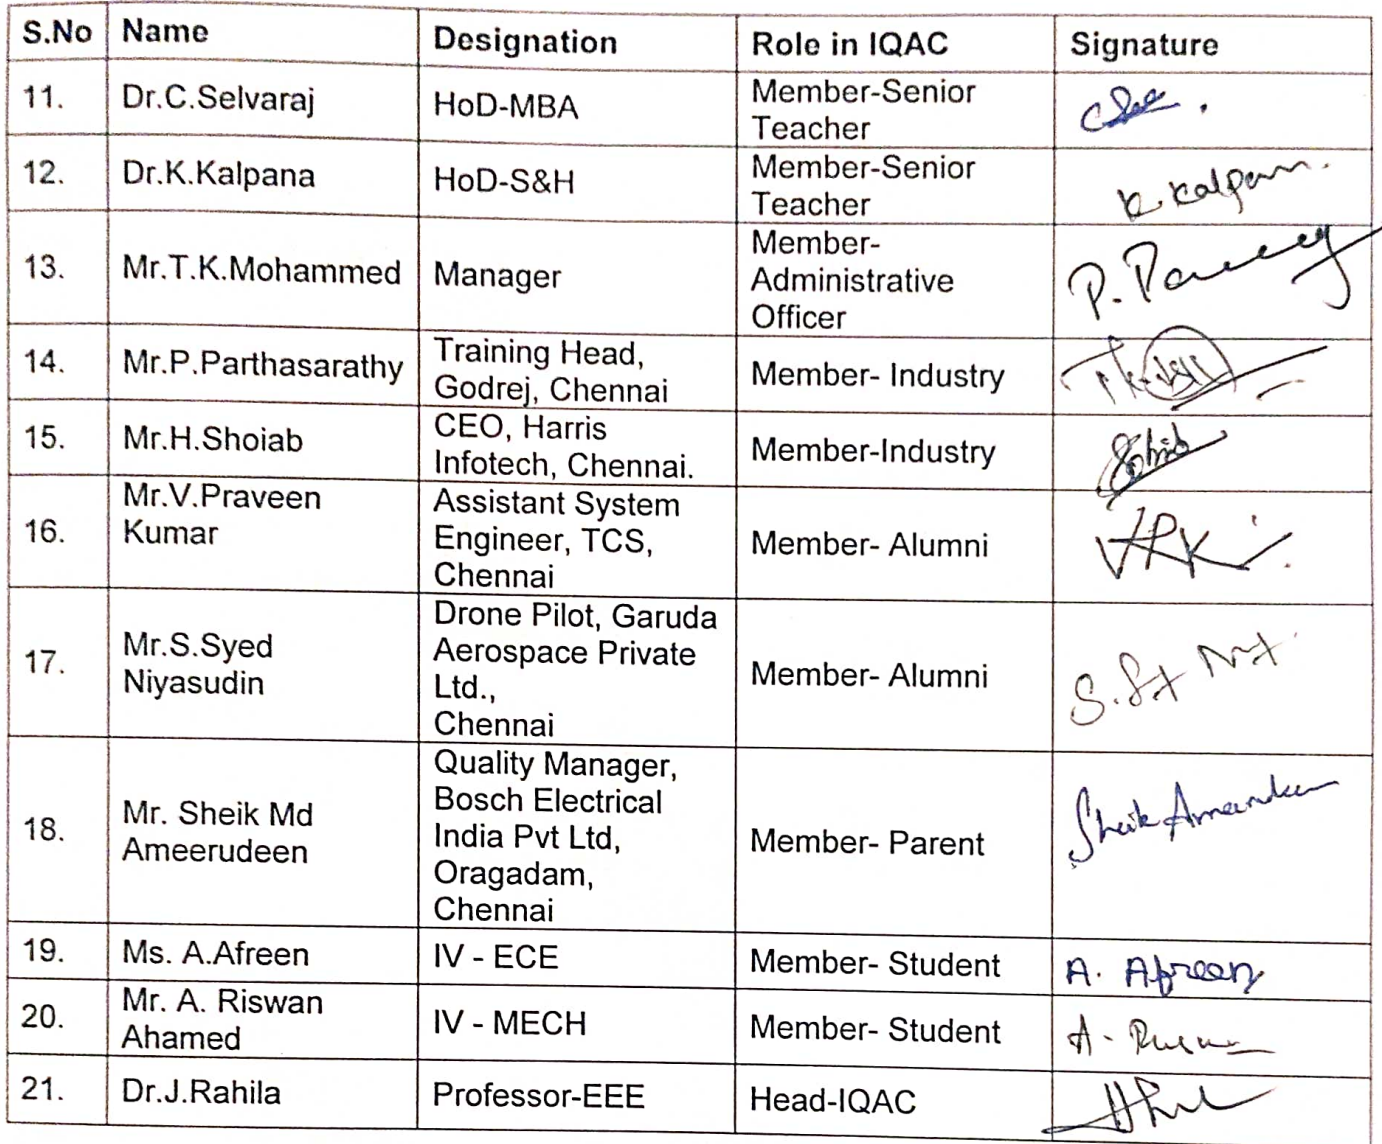 S.No Name Designation Role in IQAC Signature
11. Dr.C.Selvaraj HoD-MBA Member-Senior
Teacher
12. Dr.K.Kalpana HoD-S&H Member-Senior
Teacher
K. Kalpana.
13. Mr.T.K.Mohammed Manager Member-
Administrative
Officer
14. Mr.P.Parthasarathy Training Head,
Godrej, Chennai
Member- Industry
15. Mr.H.Shoiab CEO, Harris
Infotech, Chennai.
Member-Industry
16. Mr.V.Praveen
Kumar
Assistant System
Engineer, TCS,
Chennai
Member- Alumni
17. Mr.S.Syed
Niyasudin
Drone Pilot, Garuda
Aerospace Private
Ltd.,
Chennai
Member- Alumni
18. Mr. Sheik Md
Ameerudeen
Quality Manager,
Bosch Electrical
India Pvt Ltd,
Oragadam,
Chennai
Member- Parent
Sheik Ameerudeen
19. Ms. A.Afreen IV - ECE Member- Student A. Afreen
20. Mr. A. Riswan
Ahamed
IV - MECH Member- Student
21. Dr.J.Rahila Professor-EEE Head-IQAC